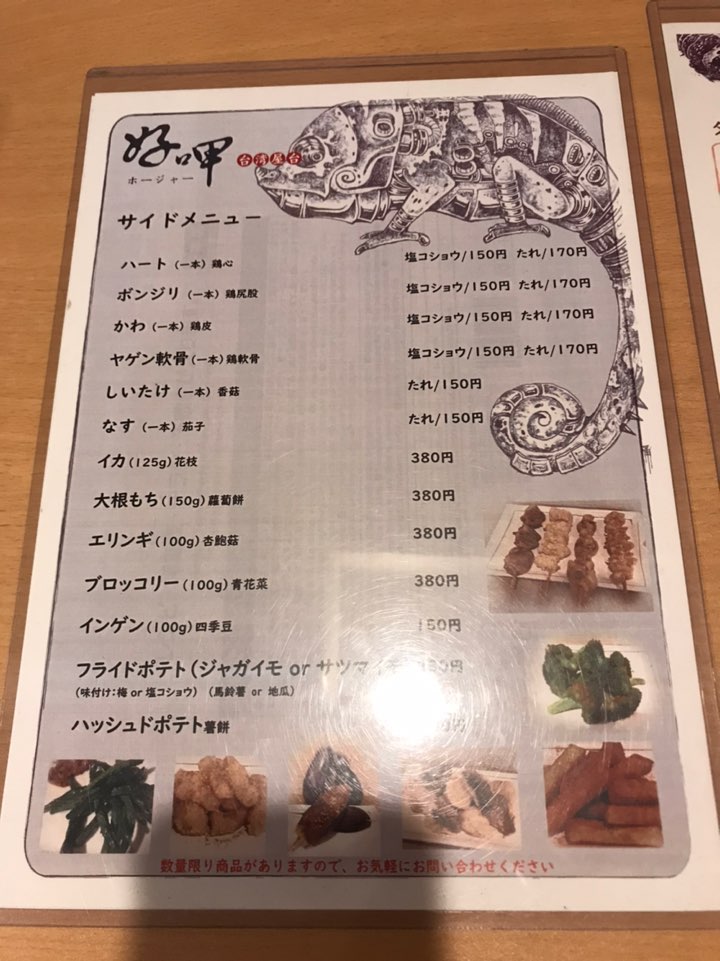 好呷 台湾屋台
ホージャー
サイドメニュー
ハート (一本) 鶏心 塩コショウ/150円 たれ/170円
ボンジリ (一本) 鶏尻股 塩コショウ/150円 たれ/170円
かわ (一本) 鶏皮 塩コショウ/150円 たれ/170円
ヤゲン軟骨 (一本) 鶏軟骨 塩コショウ/150円 たれ/170円
しいたけ (一本) 香菇 たれ/150円
なす (一本) 茄子 たれ/150円
イカ (125g) 花枝 380円
大根もち (150g) 蘿蔔餅 380円
エリンギ (100g) 杏鮑菇 380円
ブロッコリー (100g) 青花菜 380円
インゲン (100g) 四季豆 150円
フライドポテト (ジャガイモ or サツマイモ)
(味付け:梅 or 塩コショウ) (馬鈴薯 or 地瓜)
ハッシュドポテト 薯餅
数量限り商品がありますので、お気軽にお問い合わせください